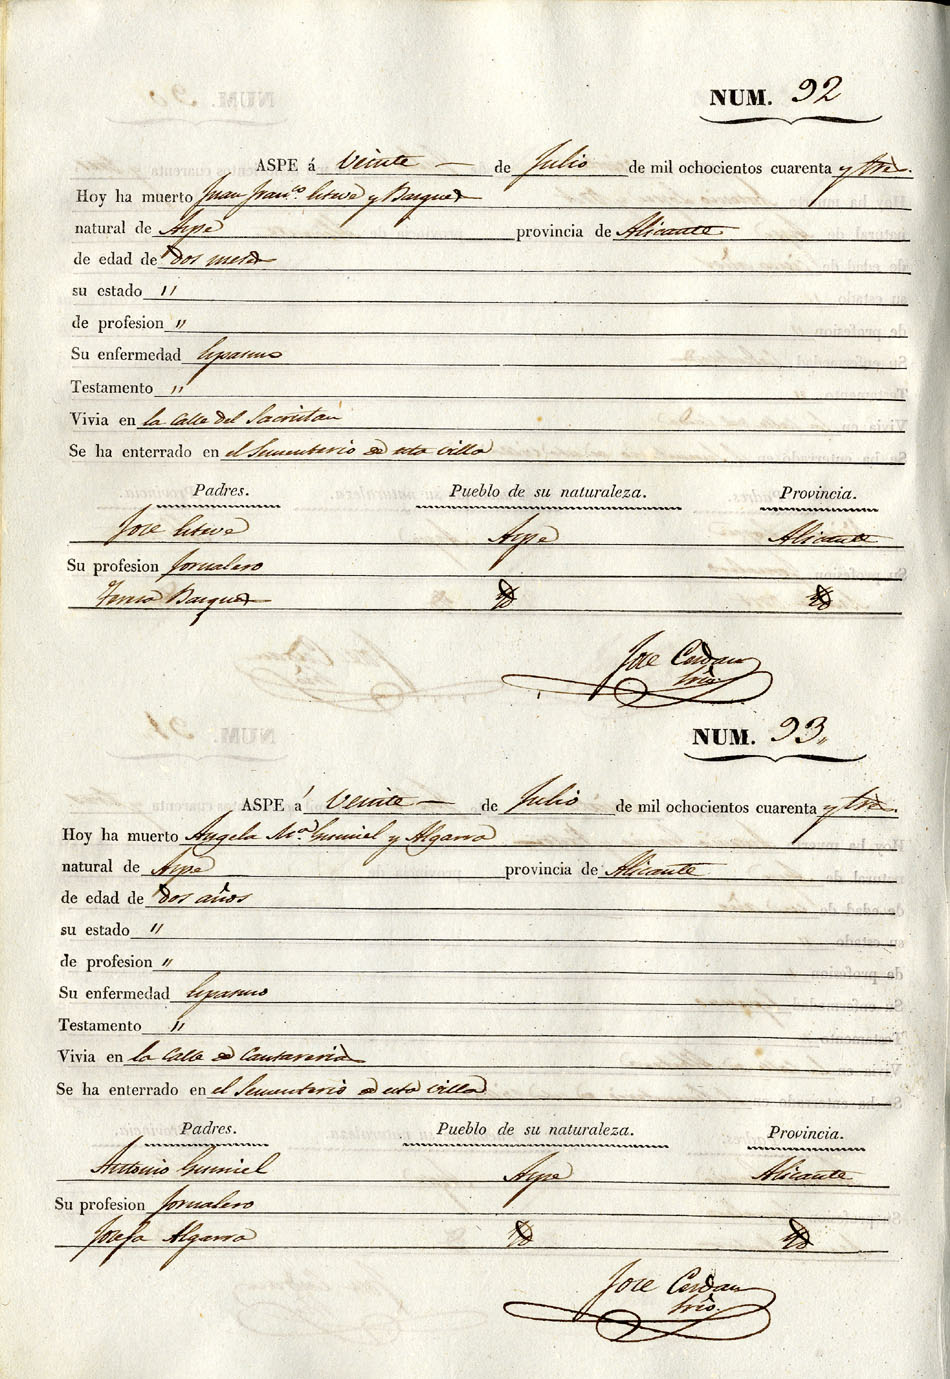 NUM. 92
ASPE á Veinte — de Julio de mil ochocientos cuarenta y tres.
Hoy ha muerto Juan Fran.co Esteve y Barques
natural de Aspe provincia de Alicante
de edad de dos meses
su estado "
de profesion "
Su enfermedad Espasmo
Testamento "
Vivia en la calle del Sacristán
Se ha enterrado en el Sementerio de esta villa
Padres. Pueblo de su naturaleza. Provincia.
Jose Esteve Aspe Alicante
Su profesion Jornalero
Teresa Barques Yd Yd
Jose Cerdan
Srio.
NUM. 93
ASPE á Veinte — de Julio de mil ochocientos cuarenta y tres.
Hoy ha muerto Angela M.a Gumiel y Algarra
natural de Aspe provincia de Alicante
de edad de dos años
su estado "
de profesion "
Su enfermedad Espasmo
Testamento "
Vivia en la Calle de Cantareria
Se ha enterrado en el Sementerio de esta villa
Padres. Pueblo de su naturaleza. Provincia.
Antonio Gumiel Aspe Alicante
Su profesion Jornalero
Josefa Algarra Yd Yd
Jose Cerdan
Srio.